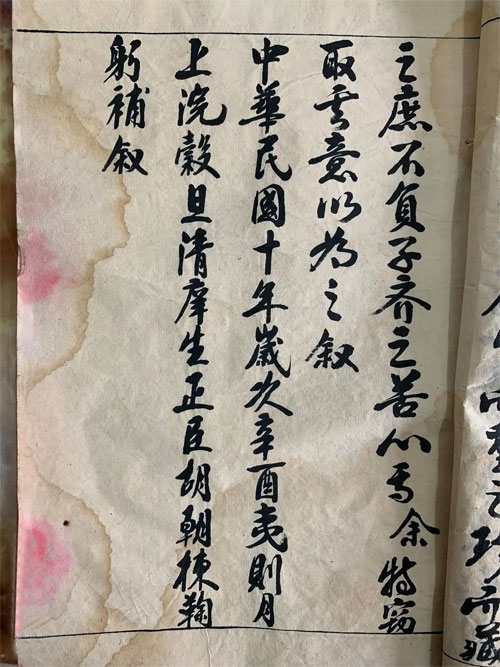 之珍而藏
之庶不負子齊之苦心焉余特竊
取其意以為之叙
中華民國十年歲次辛酉夷則月
上浣穀旦清庠生正臣胡朝棟鞠
躬補叙